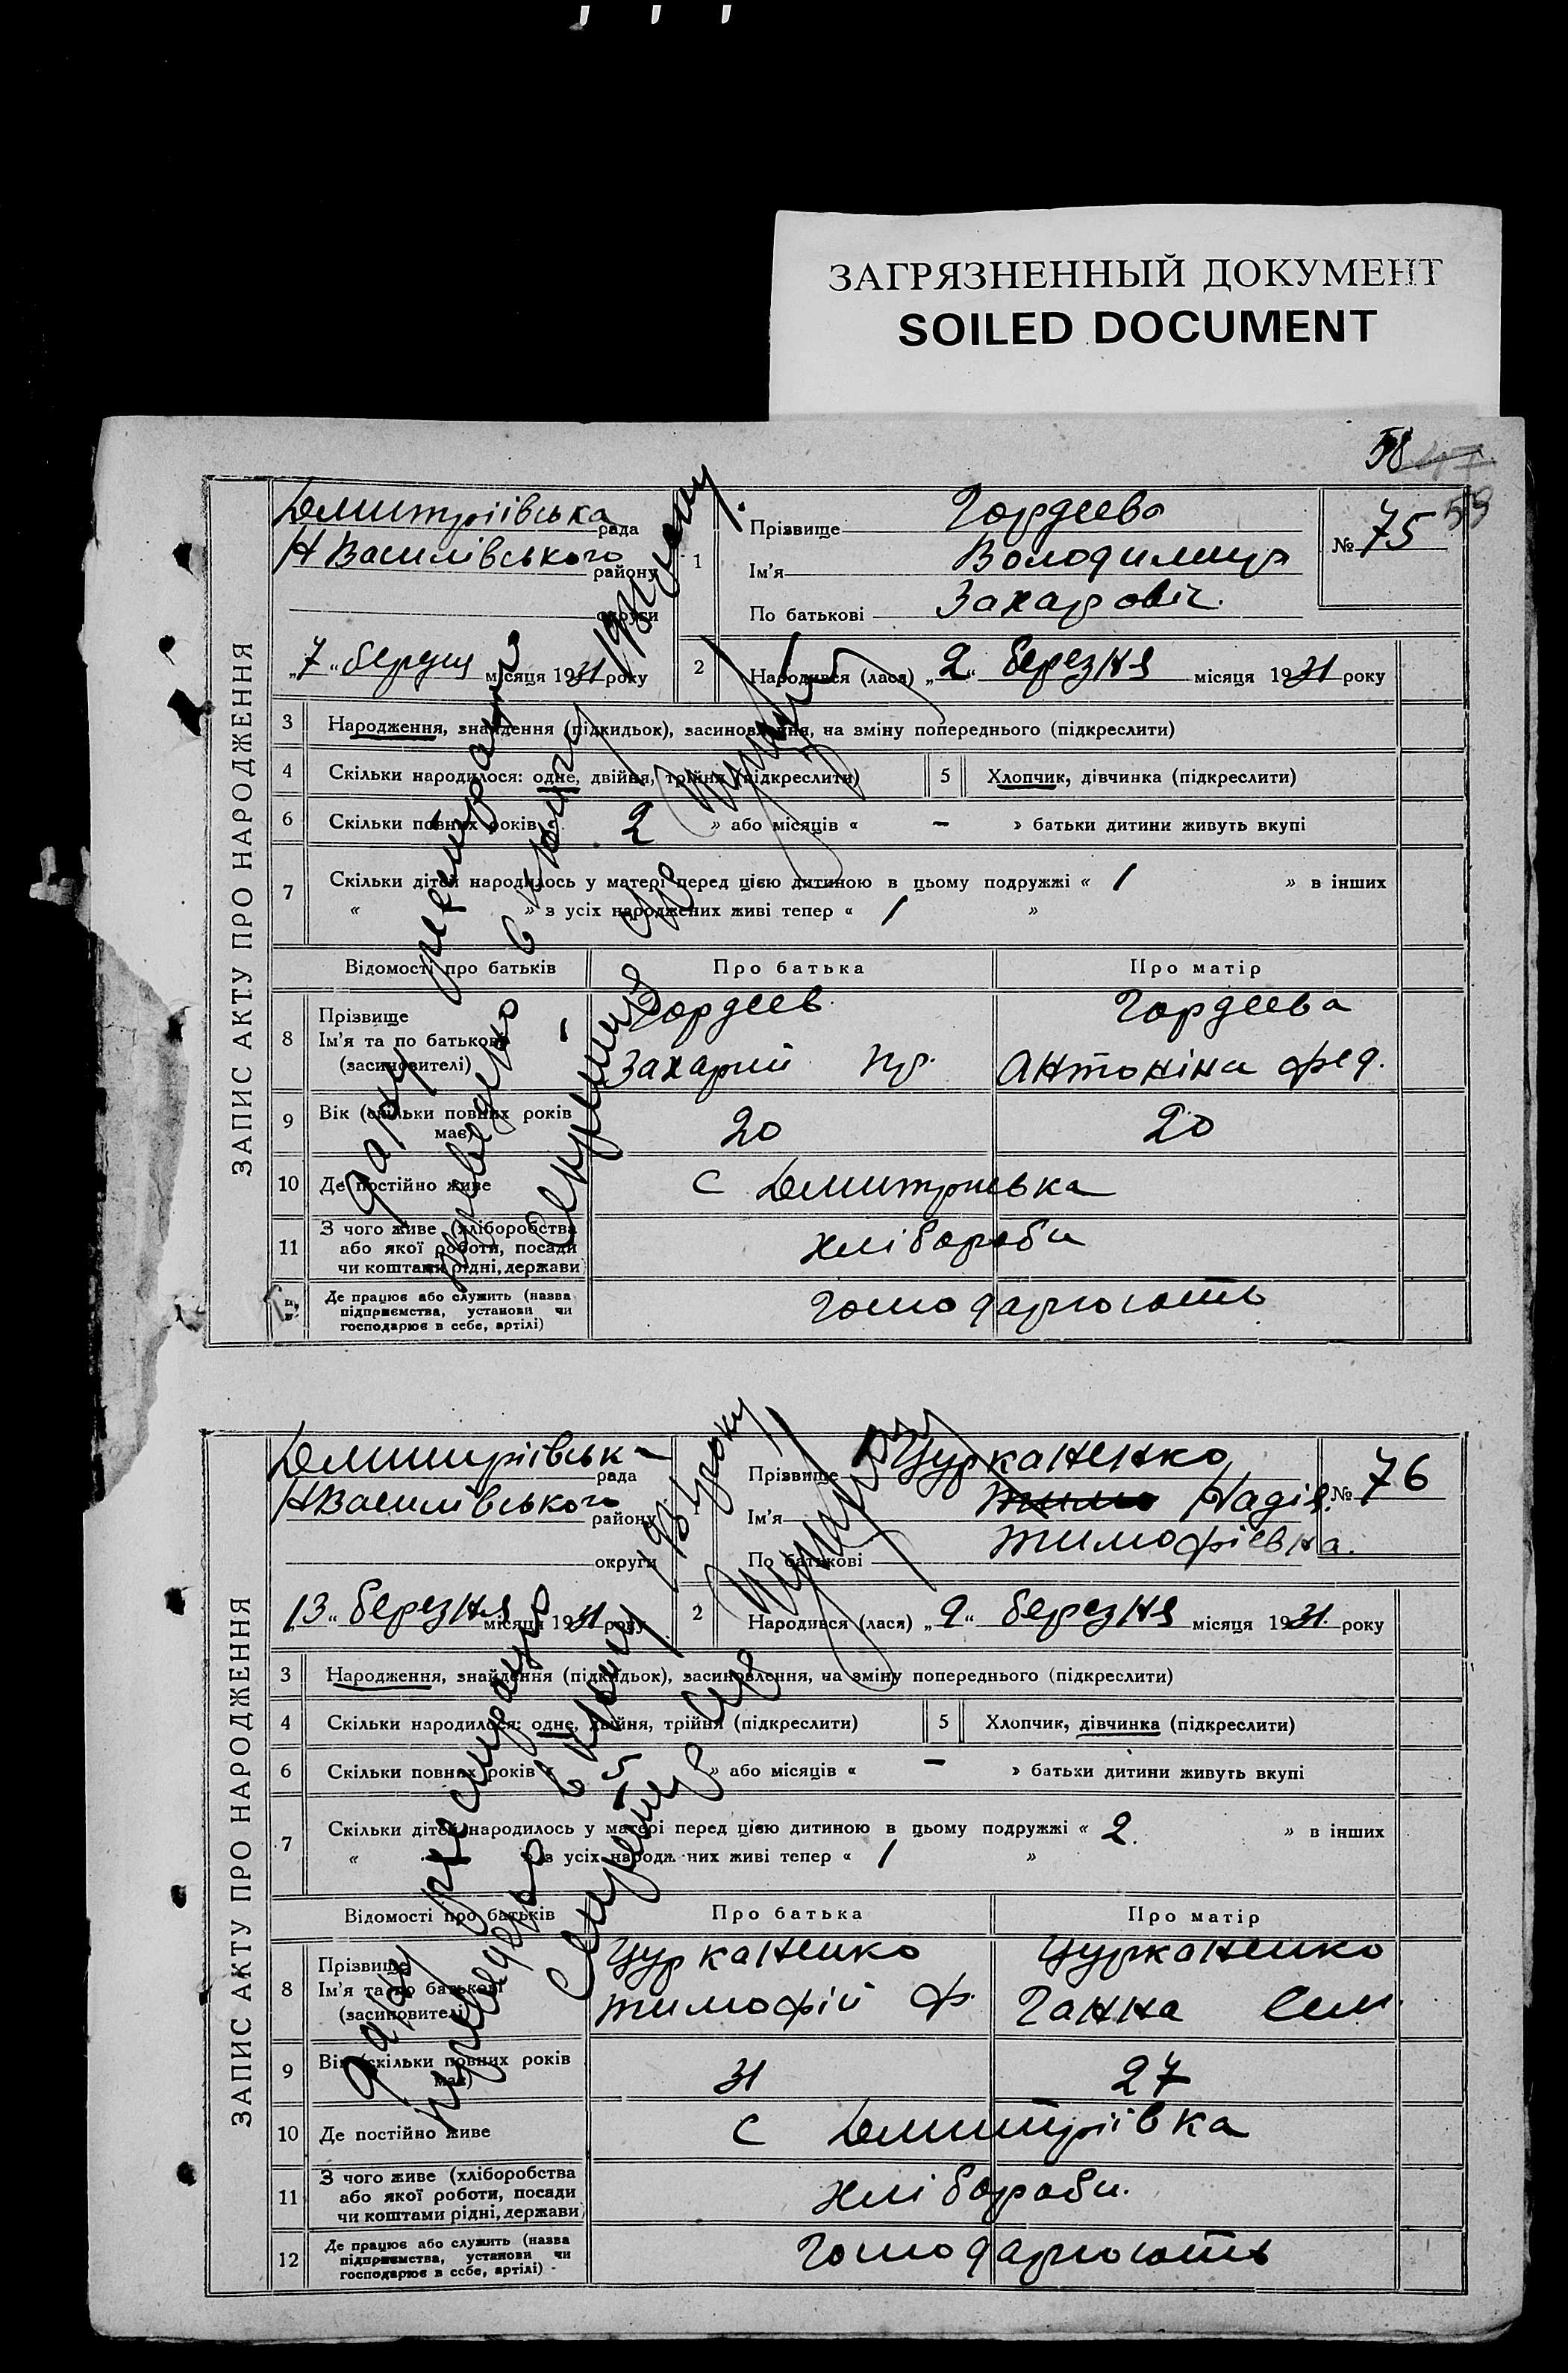 ЗАГРЯЗНЕННЫЙ ДОКУМЕНТ
SOILED DOCUMENT
58
59
ЗАПИС АКТУ ПРО НАРОДЖЕННЯ
Дмитріівська рада
Н Василівського району
округи
„7“ березня місяця 1931 року
1
Прізвище Гордеева
Ім'я Володимир
По батькові Захарович.
№ 75
2 Народився (лася) „2“ березня місяця 1931 року
3 Народження, знайдення (підкидьок), засиновлення, на зміну попереднього (підкреслити)
4 Скільки народилося: одне, двійня, трійня (підкреслити) 5 Хлопчик, дівчинка (підкреслити)
6 Скільки повних років „ 2 » або місяців « — » батьки дитини живуть вкупі
7 Скільки дітей народилось у матері перед цією дитиною в цьому подружжі « 1 » в інших
« » з усіх народжених живі тепер « 1 »
Відомості про батьків Про батька Про матір
8 Прізвище Гордеев. Гордеева
Ім'я та по батькові
(засиновителі) Захарий Пр. Антоніна Фед.
9 Вік (скільки повних років має) 20 20
10 Де постійно живе с Дмитриевка
11 З чого живе (хліборобства
або якої роботи, посади
чи коштами рідні, держави) хлібороби
Де працює або служить (назва
підприємства, установи чи
господарює в себе, артілі) господарюють
Дану регистрацію
переведено в книгу 1931 року.
Секритар
ЗАПИС АКТУ ПРО НАРОДЖЕННЯ
Дмитріівська рада
Н Василівського району
округи
„13“ березня місяця 1931 року
1
Прізвище Цурканенко
Ім'я Надія.
По батькові Тимофіевна.
№ 76
2 Народився (лася) „9“ березня місяця 1931. року
3 Народження, знайдення (підкидьок), засиновлення, на зміну попереднього (підкреслити)
4 Скільки народилося: одне, двійня, трійня (підкреслити) 5 Хлопчик, дівчинка (підкреслити)
6 Скільки повних років « 5 » або місяців « — » батьки дитини живуть вкупі
7 Скільки дітей народилось у матері перед цією дитиною в цьому подружжі « 2. » в інших
« » з усіх народж них живі тепер « 1 »
Відомості про батьків Про батька Про матір
8 Прізвище Цурканенко Цурканенко
Ім'я та по батькові
(засиновителі) Тимофій Ф. Ганна Сем.
9 Вік (скільки повних років має) 31 27
10 Де постійно живе с Дмитріівка
11 З чого живе (хліборобства
або якої роботи, посади
чи коштами рідні, держави) хлібороби.
12 Де працює або служить (назва
підприємства, установи чи
господарює в себе, артілі) господарюють
Дану регистрацію
переведено в книгу 1931 року
Секритар